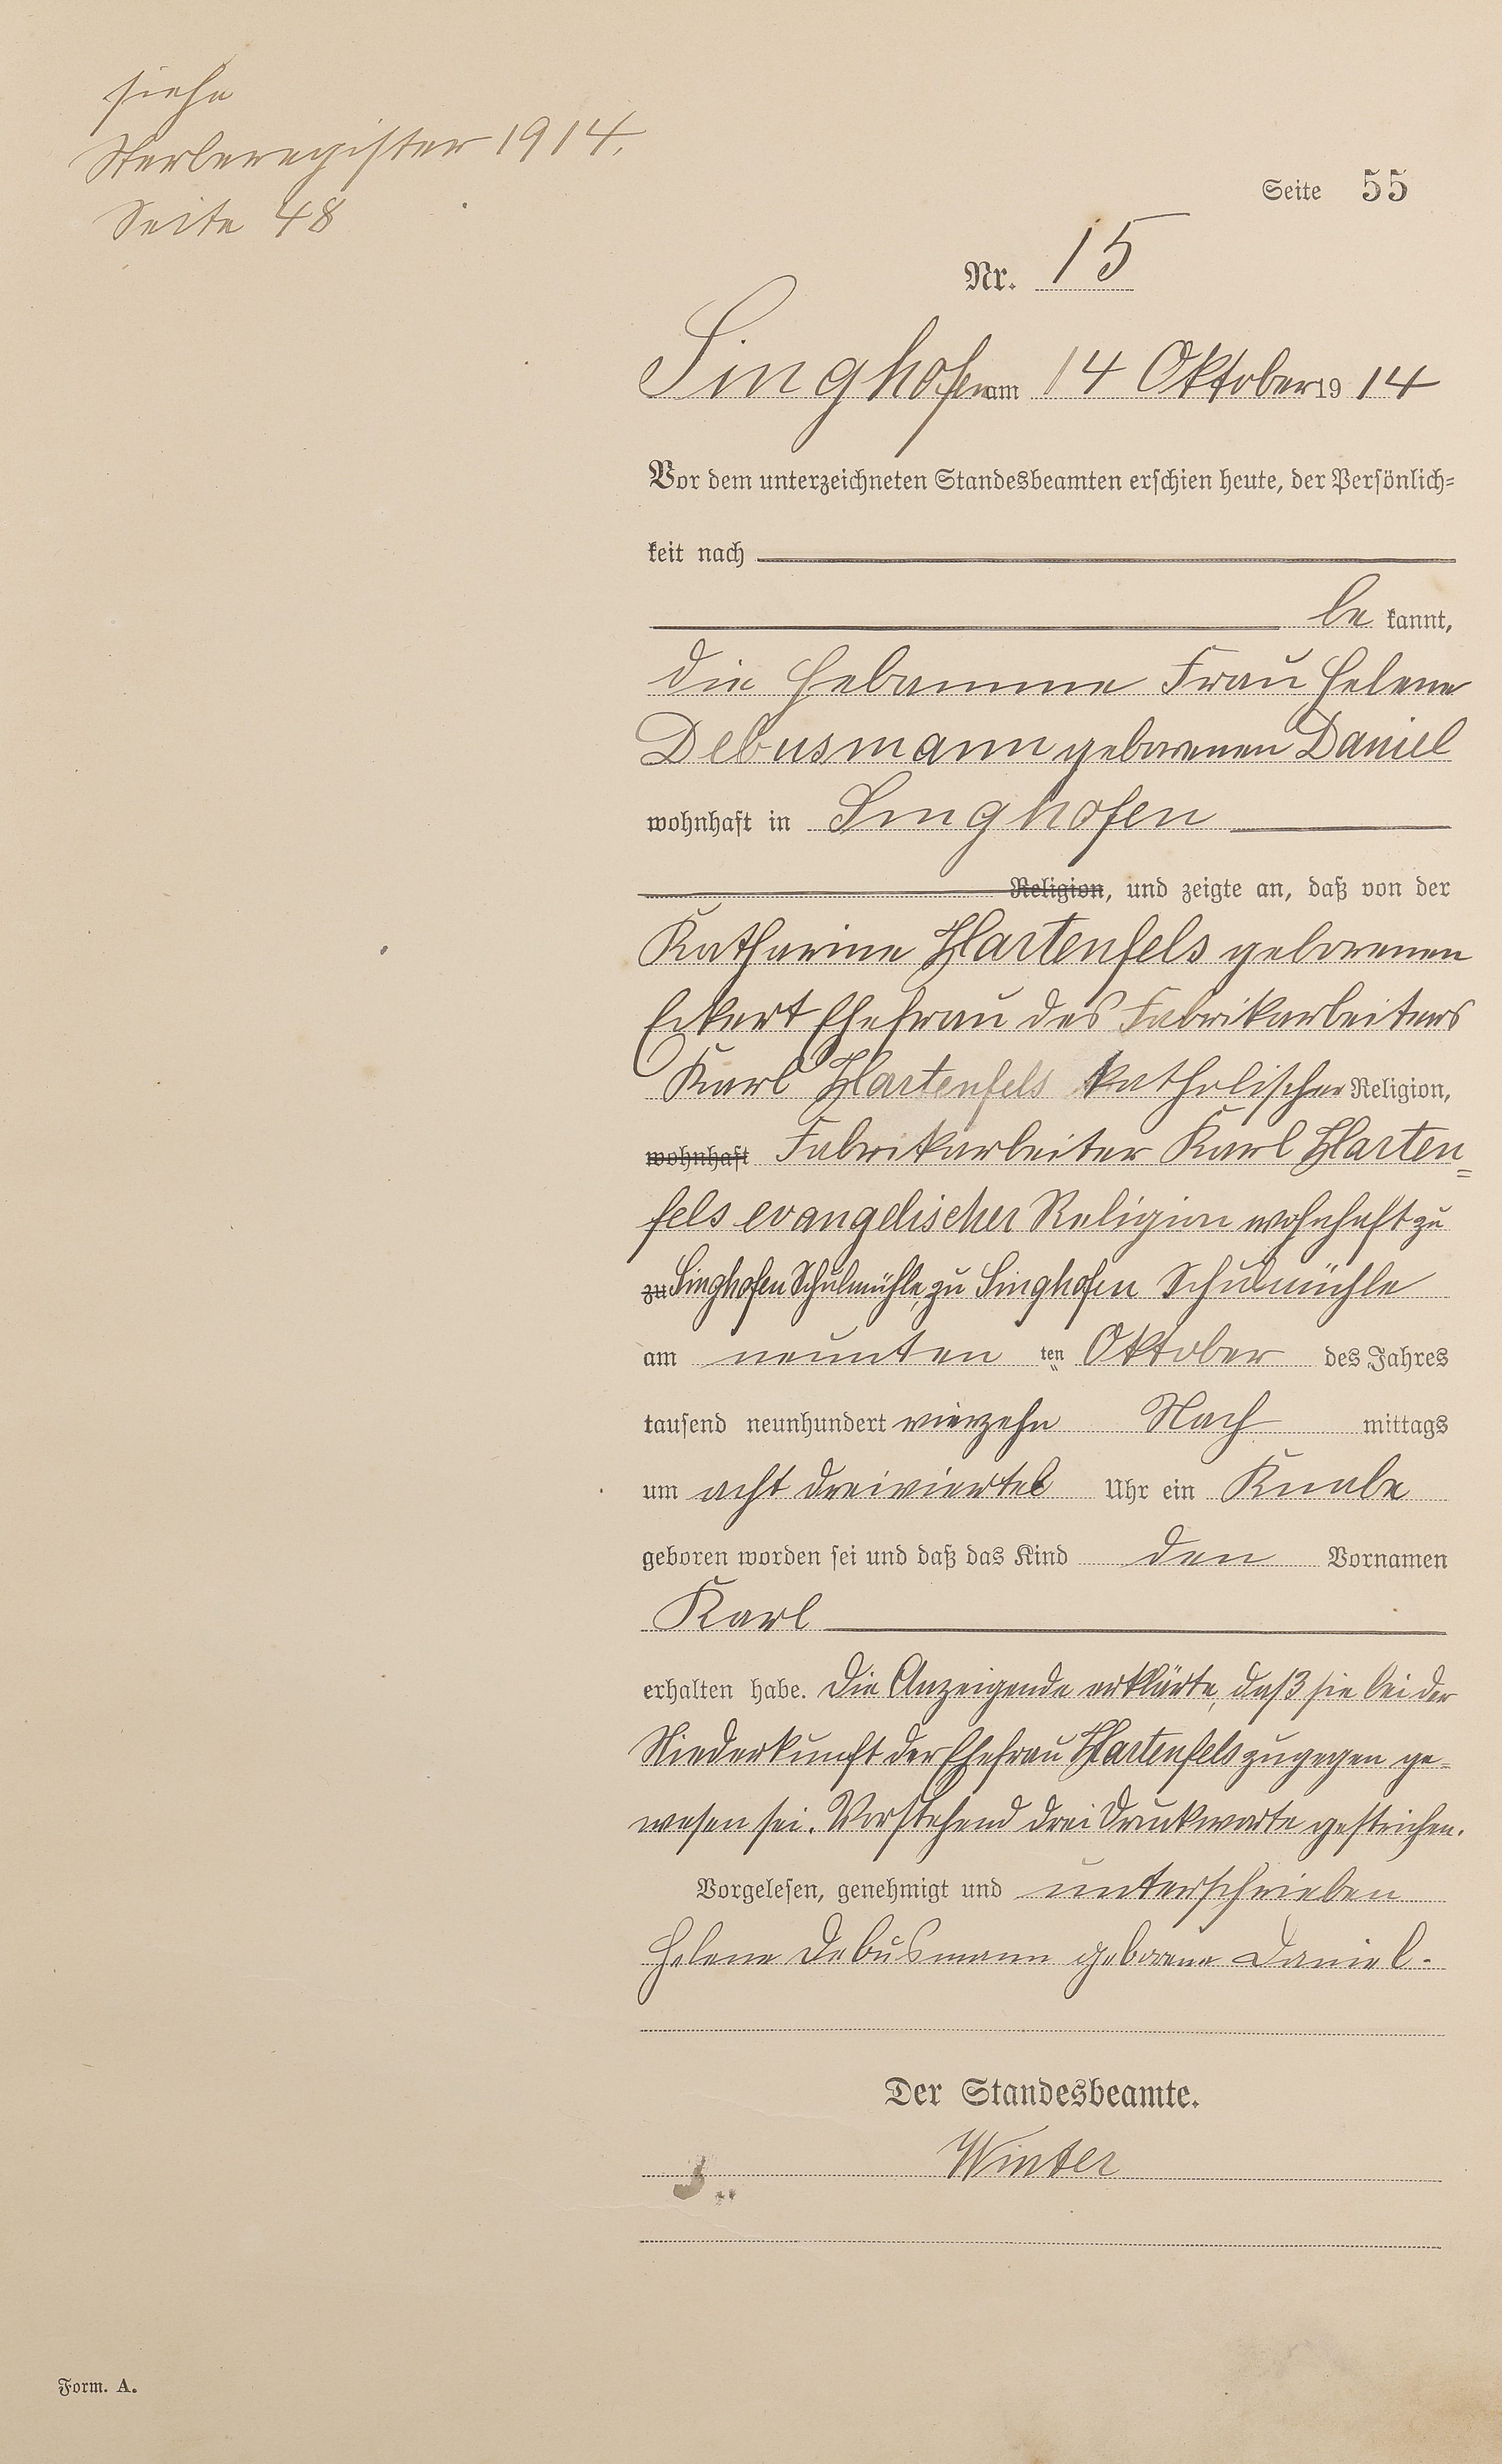 siehe
Sterberegister 1914.
Seite 48
Seite 55
Nr. 15
Singhofen am 14 Oktober 1914
Vor dem unterzeichneten Standesbeamten erschien heute, der Persönlich=
keit nach
be kannt,
die Hebamme Frau Helene
Debusmann geborenen Daniel
wohnhaft in Singhofen
Religion, und zeigte an, daß von der
Katharine Hartenfels geborenen
Eckert Ehefrau des Fabrikarbeiters
Karl Hartenfels katholischer Religion,
wohnhaft Fabrikarbeiter Karl Harten=
fels evangelischer Religion wohnhaft zu
zu Singhofen Schulmühle, zu Singhofen Schulmühle
am neunten ten Oktober des Jahres
tausend neunhundert vierzehn Nach mittags
um acht dreiviertel Uhr ein Knabe
geboren worden sei und daß das Kind den Vornamen
Karl
erhalten habe. Die Anzeigende erklärte, daß sie bei der
Niederkunft der Ehefrau Hartenfels zugegen ge-
wesen sei. Vorstehend drei Druckworte gestrichen.
Vorgelesen, genehmigt und unterschrieben
Helene Debusmann geborene Daniel.
Der Standesbeamte.
Winter
Form. A.